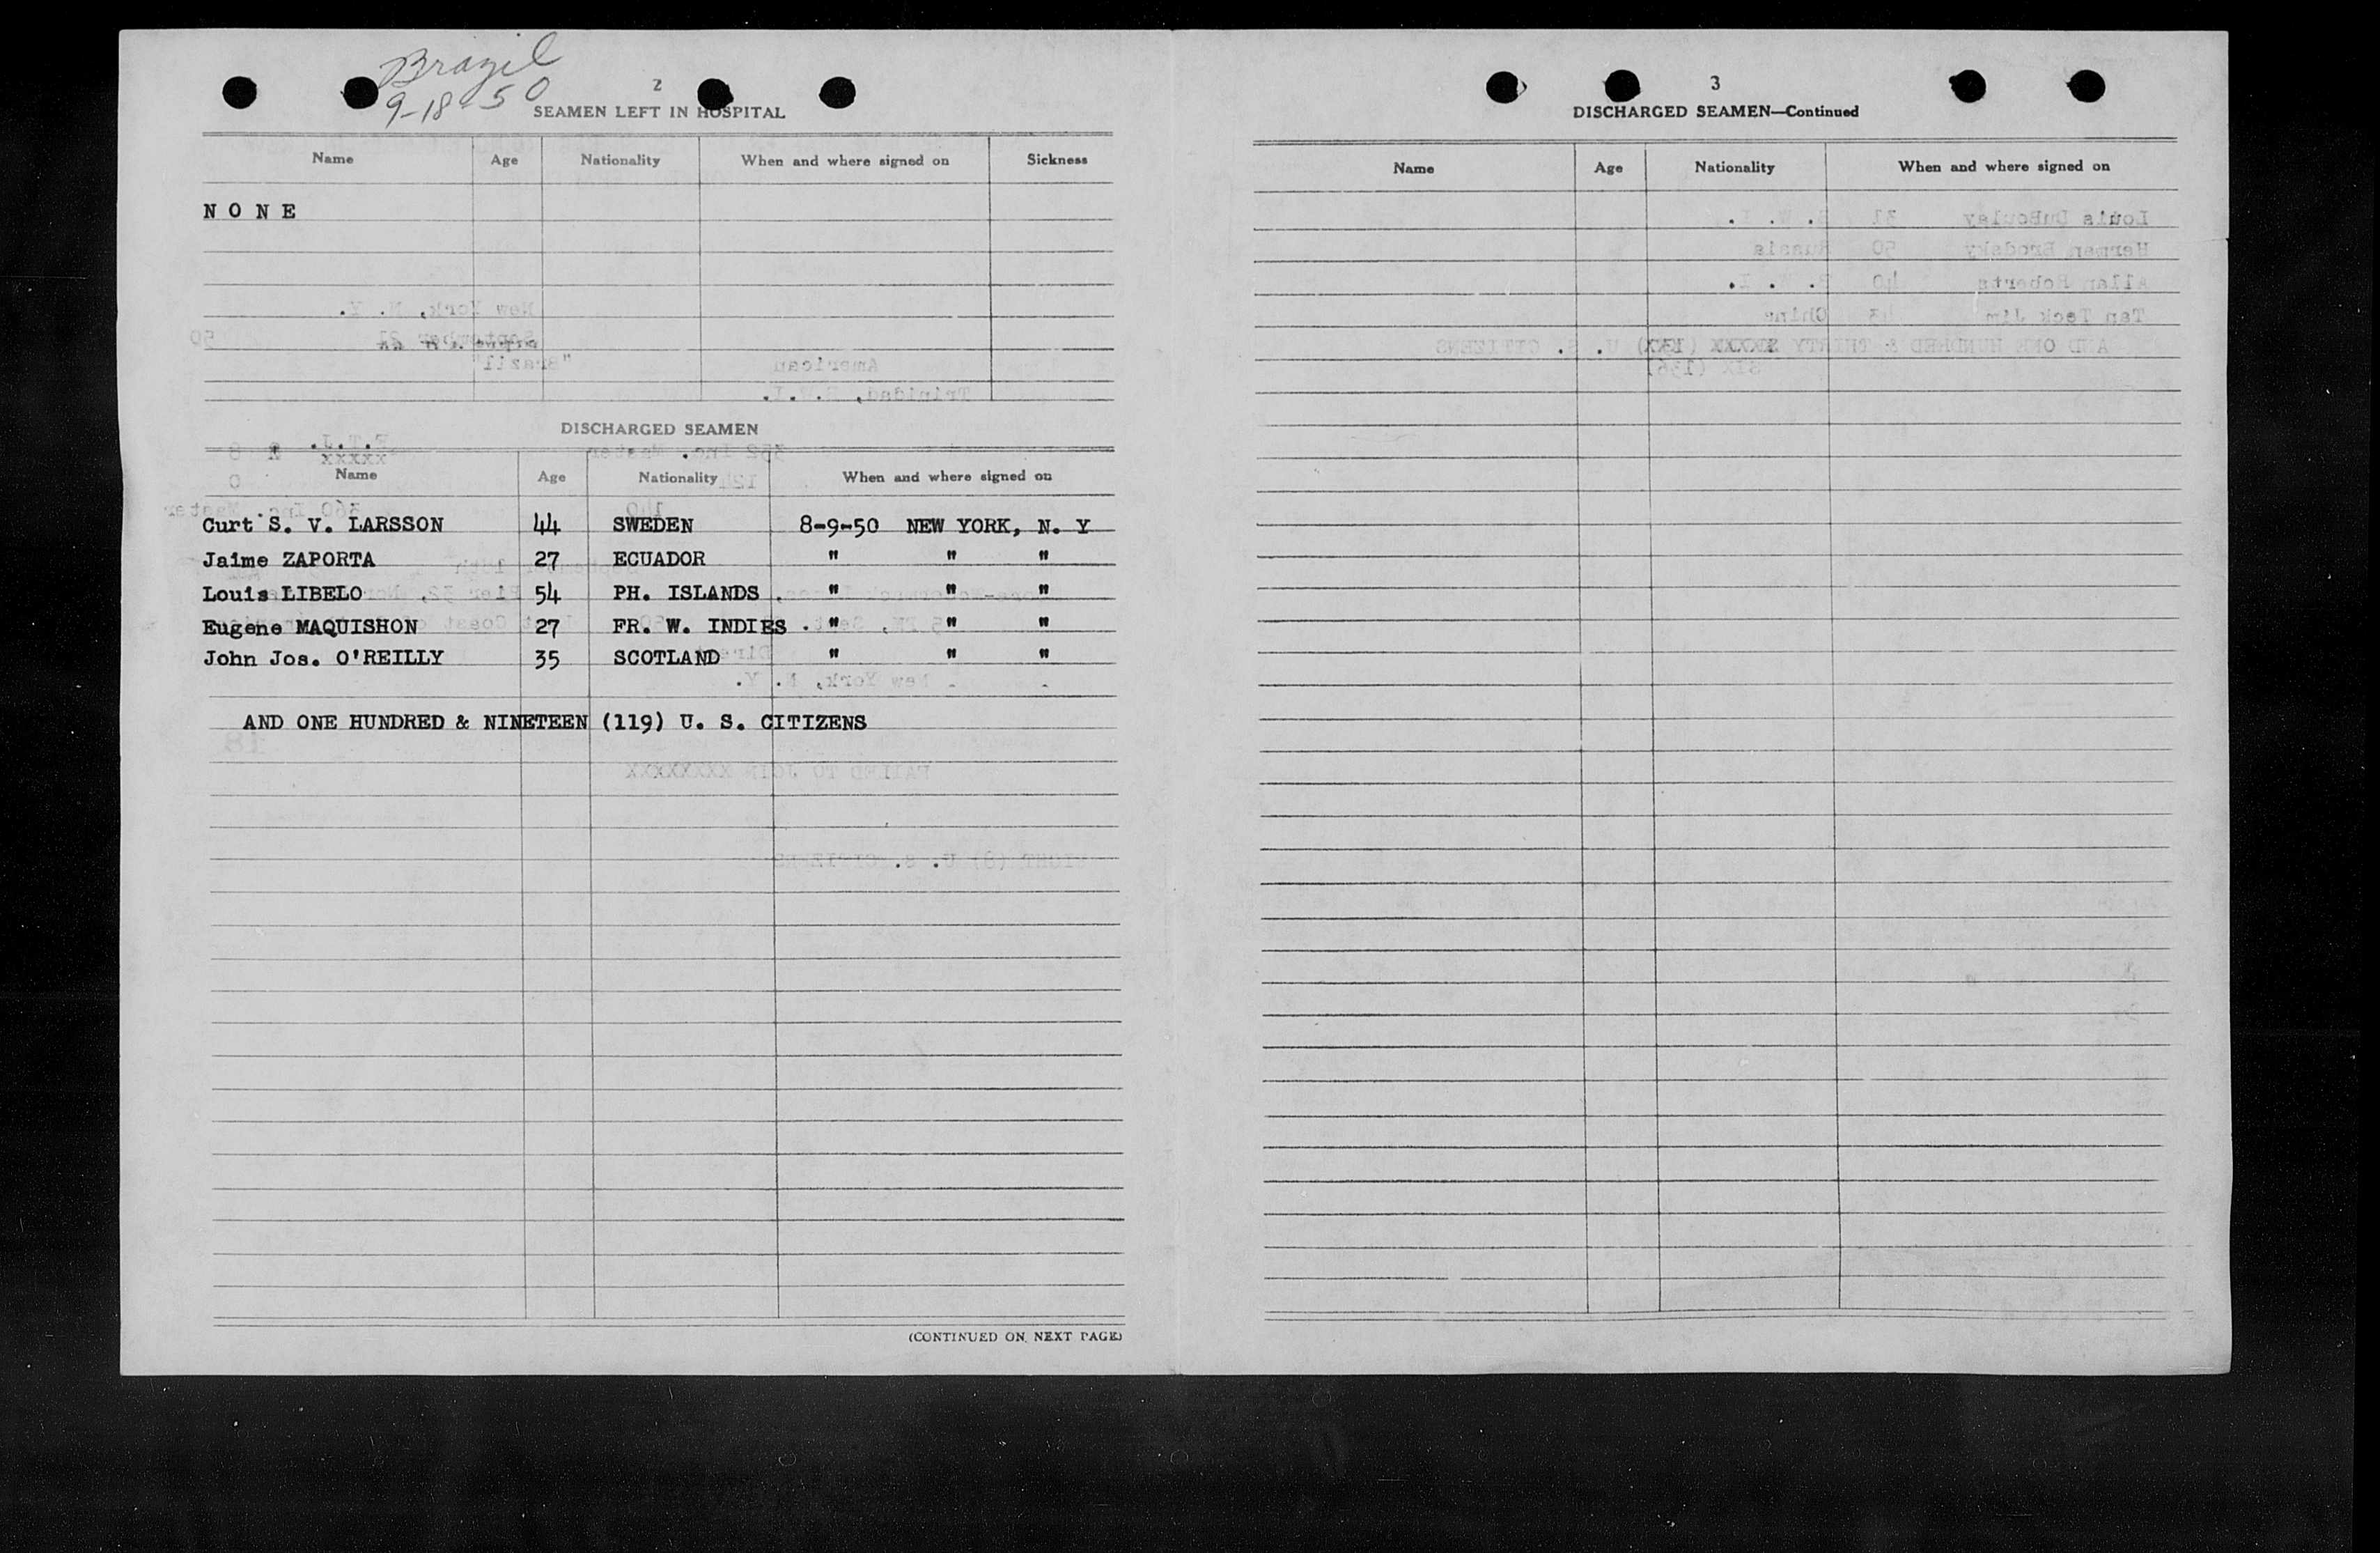 Brazil
9-18-50
2
SEAMEN LEFT IN HOSPITAL
Name Age Nationality When and where signed on Sickness
N O N E
DISCHARGED SEAMEN
Name Age Nationality When and where signed on
Curt S. V. LARSSON 44 SWEDEN 8-9-50 NEW YORK, N. Y
Jaime ZAPORTA 27 ECUADOR " " "
Louis LIBELO 54 PH. ISLANDS " " "
Eugene MAQUISHON 27 FR. W. INDIES " " "
John Jos. O'REILLY 35 SCOTLAND " " "
AND ONE HUNDRED & NINETEEN (119) U. S. CITIZENS
(CONTINUED ON NEXT PAGE)
3
DISCHARGED SEAMEN—Continued
Name Age Nationality When and where signed on